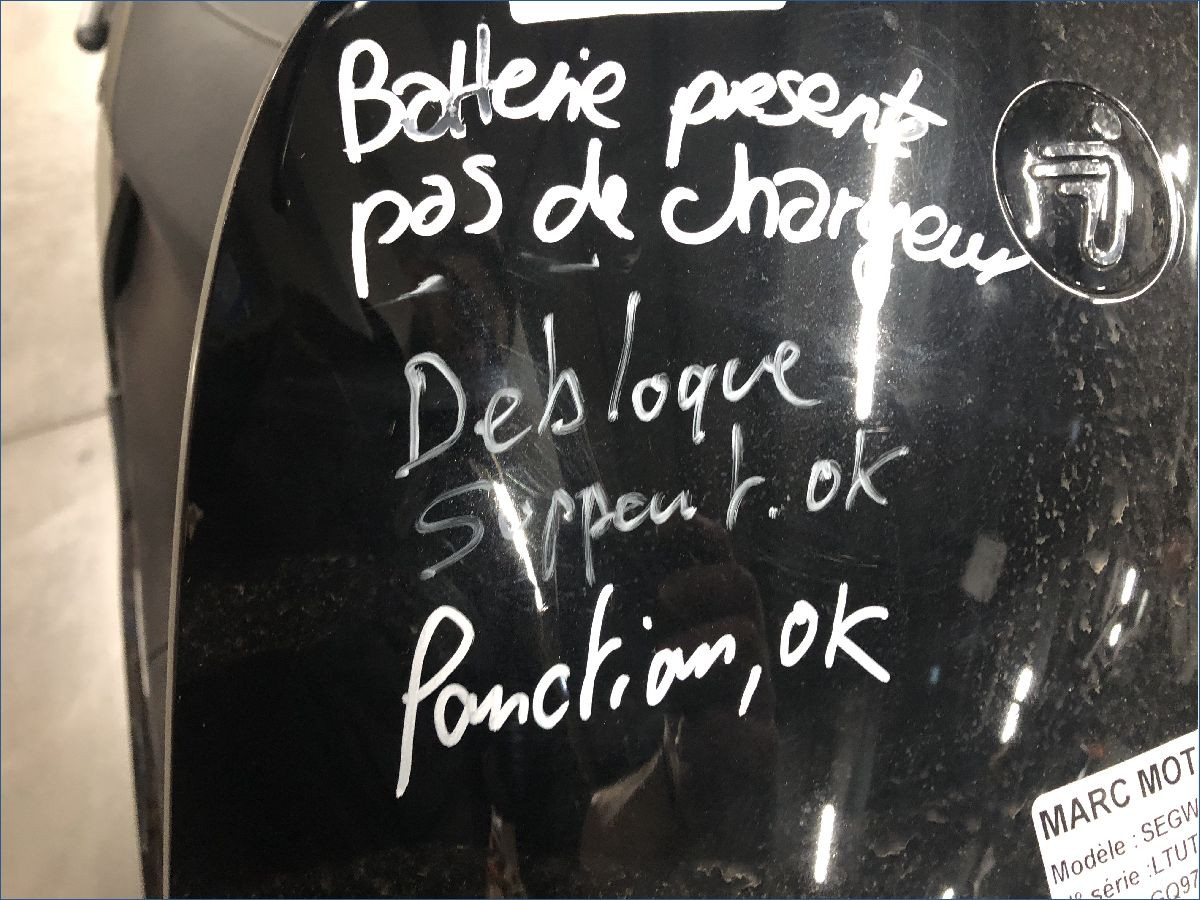 Batterie present
pas de chargeur
Debloque
support. ok
Fonction, ok
MARC MOT
Modèle : SEGW
N° série : LTUT
GQ97